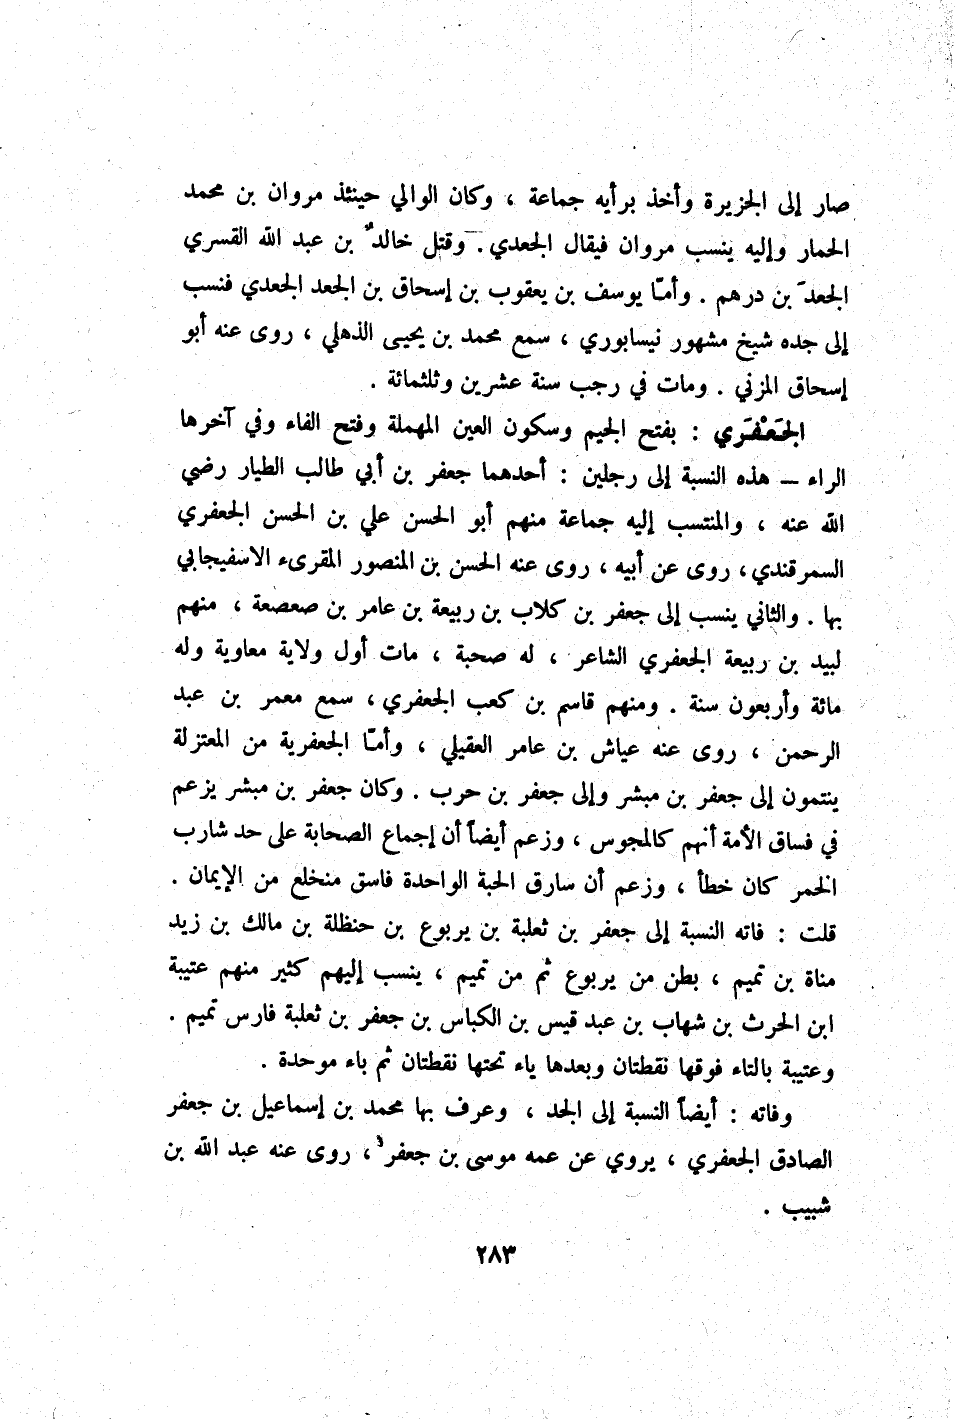 صار إلى الجزيرة وأخذ برأيه جماعة ، وكان الوالي حينئذ مروان بن محمد
الحمار وإليه ينسب مروان فيقال الجعدي . وقتل خالدٌ بن عبد الله القسري
الجعدَ بن درهم . وأمّا يوسف بن يعقوب بن إسحاق بن الجعد الجعدي فنسب
إلى جده شيخ مشهور نيسابوري ، سمع محمد بن يحيى الذهلي ، روى عنه أبو
إسحاق المزني . ومات في رجب سنة عشرين وثلثمائة .
الجَعْفَري : بفتح الجيم وسكون العين المهملة وفتح الفاء وفي آخرها
الراء – هذه النسبة إلى رجلين : أحدهما جعفر بن أبي طالب الطيار رضي
الله عنه ، والمنتسب إليه جماعة منهم أبو الحسن علي بن الحسن الجعفري
السمرقندي ، روى عن أبيه ، روى عنه الحسن بن المنصور المقرىء الاسفيجابي
بها . والثاني ينسب إلى جعفر بن كلاب بن ربيعة بن عامر بن صعصعة ، منهم
لبيد بن ربيعة الجعفري الشاعر ، له صحبة ، مات أول ولاية معاوية وله
مائة وأربعون سنة . ومنهم قاسم بن كعب الجعفري ، سمع معمر بن عبد
الرحمن ، روى عنه عياش بن عامر العقيلي ، وأمّا الجعفرية من المعتزلة
ينتمون إلى جعفر بن مبشر وإلى جعفر بن حرب . وكان جعفر بن مبشر يزعم
في فساق الأمة أنهم كالمجوس ، وزعم أيضاً أن إجماع الصحابة على حد شارب
الخمر كان خطأ ، وزعم أن سارق الحبة الواحدة فاسق منخلع من الإيمان .
قلت : فاته النسبة إلى جعفر بن ثعلبة بن يربوع بن حنظلة بن مالك بن زيد
مناة بن تميم ، بطن من يربوع ثم من تميم ، ينسب إليهم كثير منهم عتيبة
ابن الحرث بن شهاب بن عبد قيس بن الكباس بن جعفر بن ثعلبة فارس تميم .
وعتيبة بالتاء فوقها نقطتان وبعدها ياء تحتها نقطتان ثم باء موحدة .
وفاته : أيضاً النسبة إلى الجد ، وعرف بها محمد بن إسماعيل بن جعفر
الصادق الجعفري ، يروي عن عمه موسى بن جعفر ، روى عنه عبد الله بن
شبيب .
٢٨٣